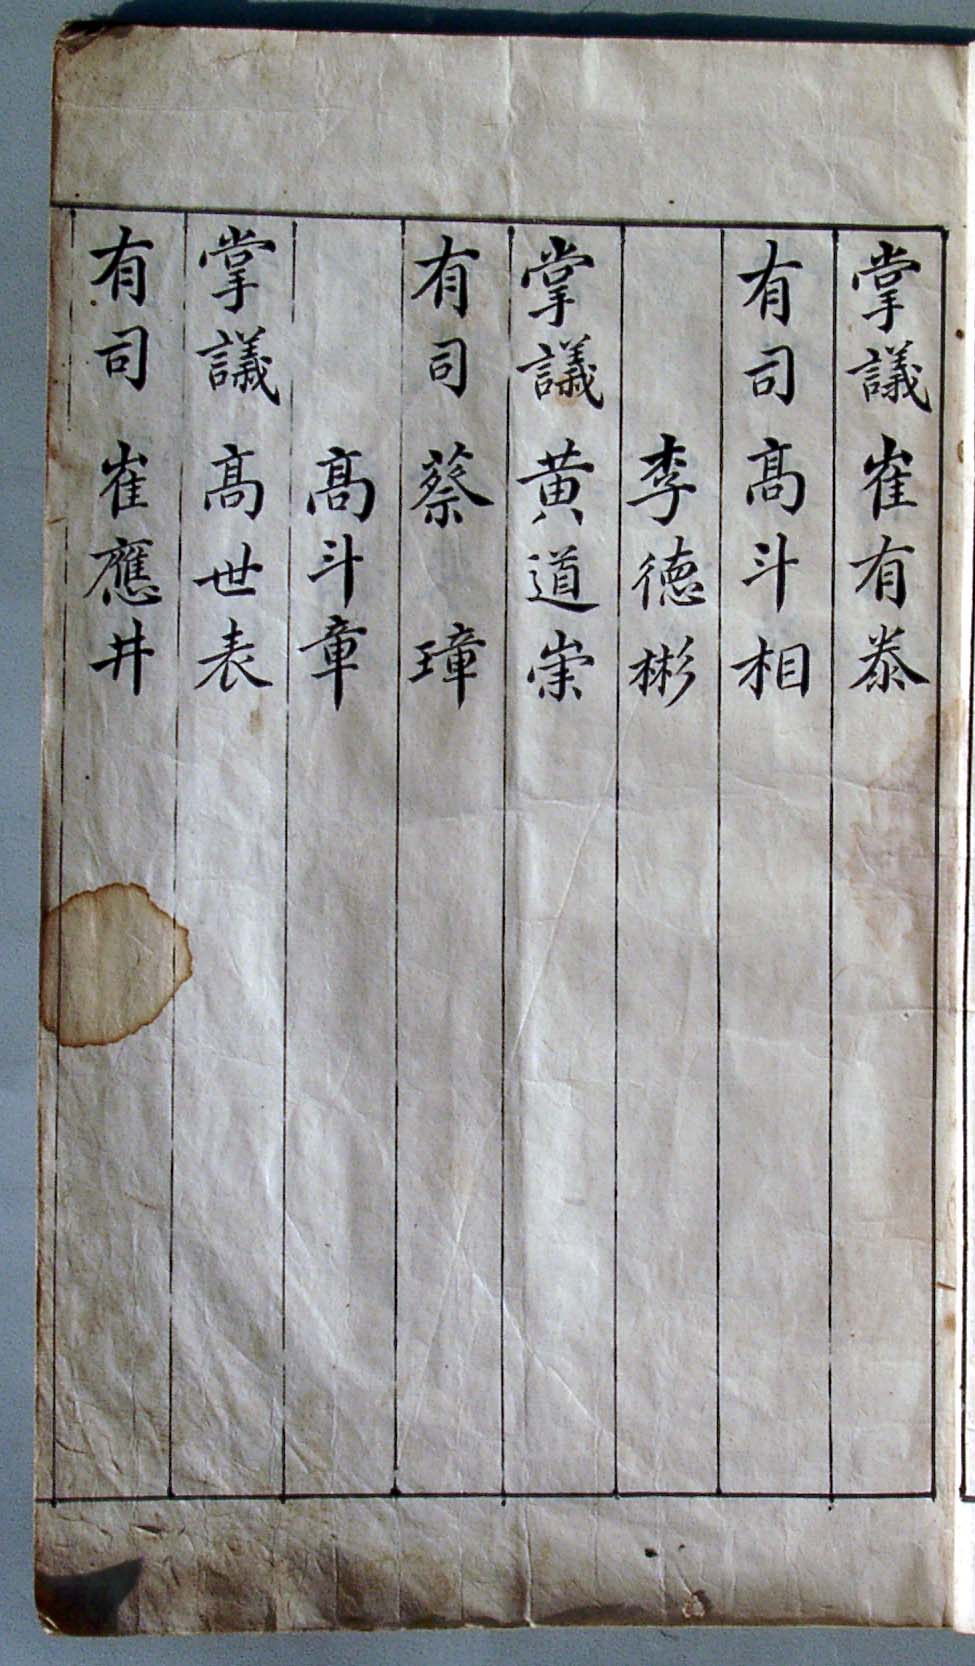 掌議 崔有泰
有司 高斗相
李德彬
掌議 黃道崇
有司 蔡璋
高斗章
掌議 高世表
有司 崔應井